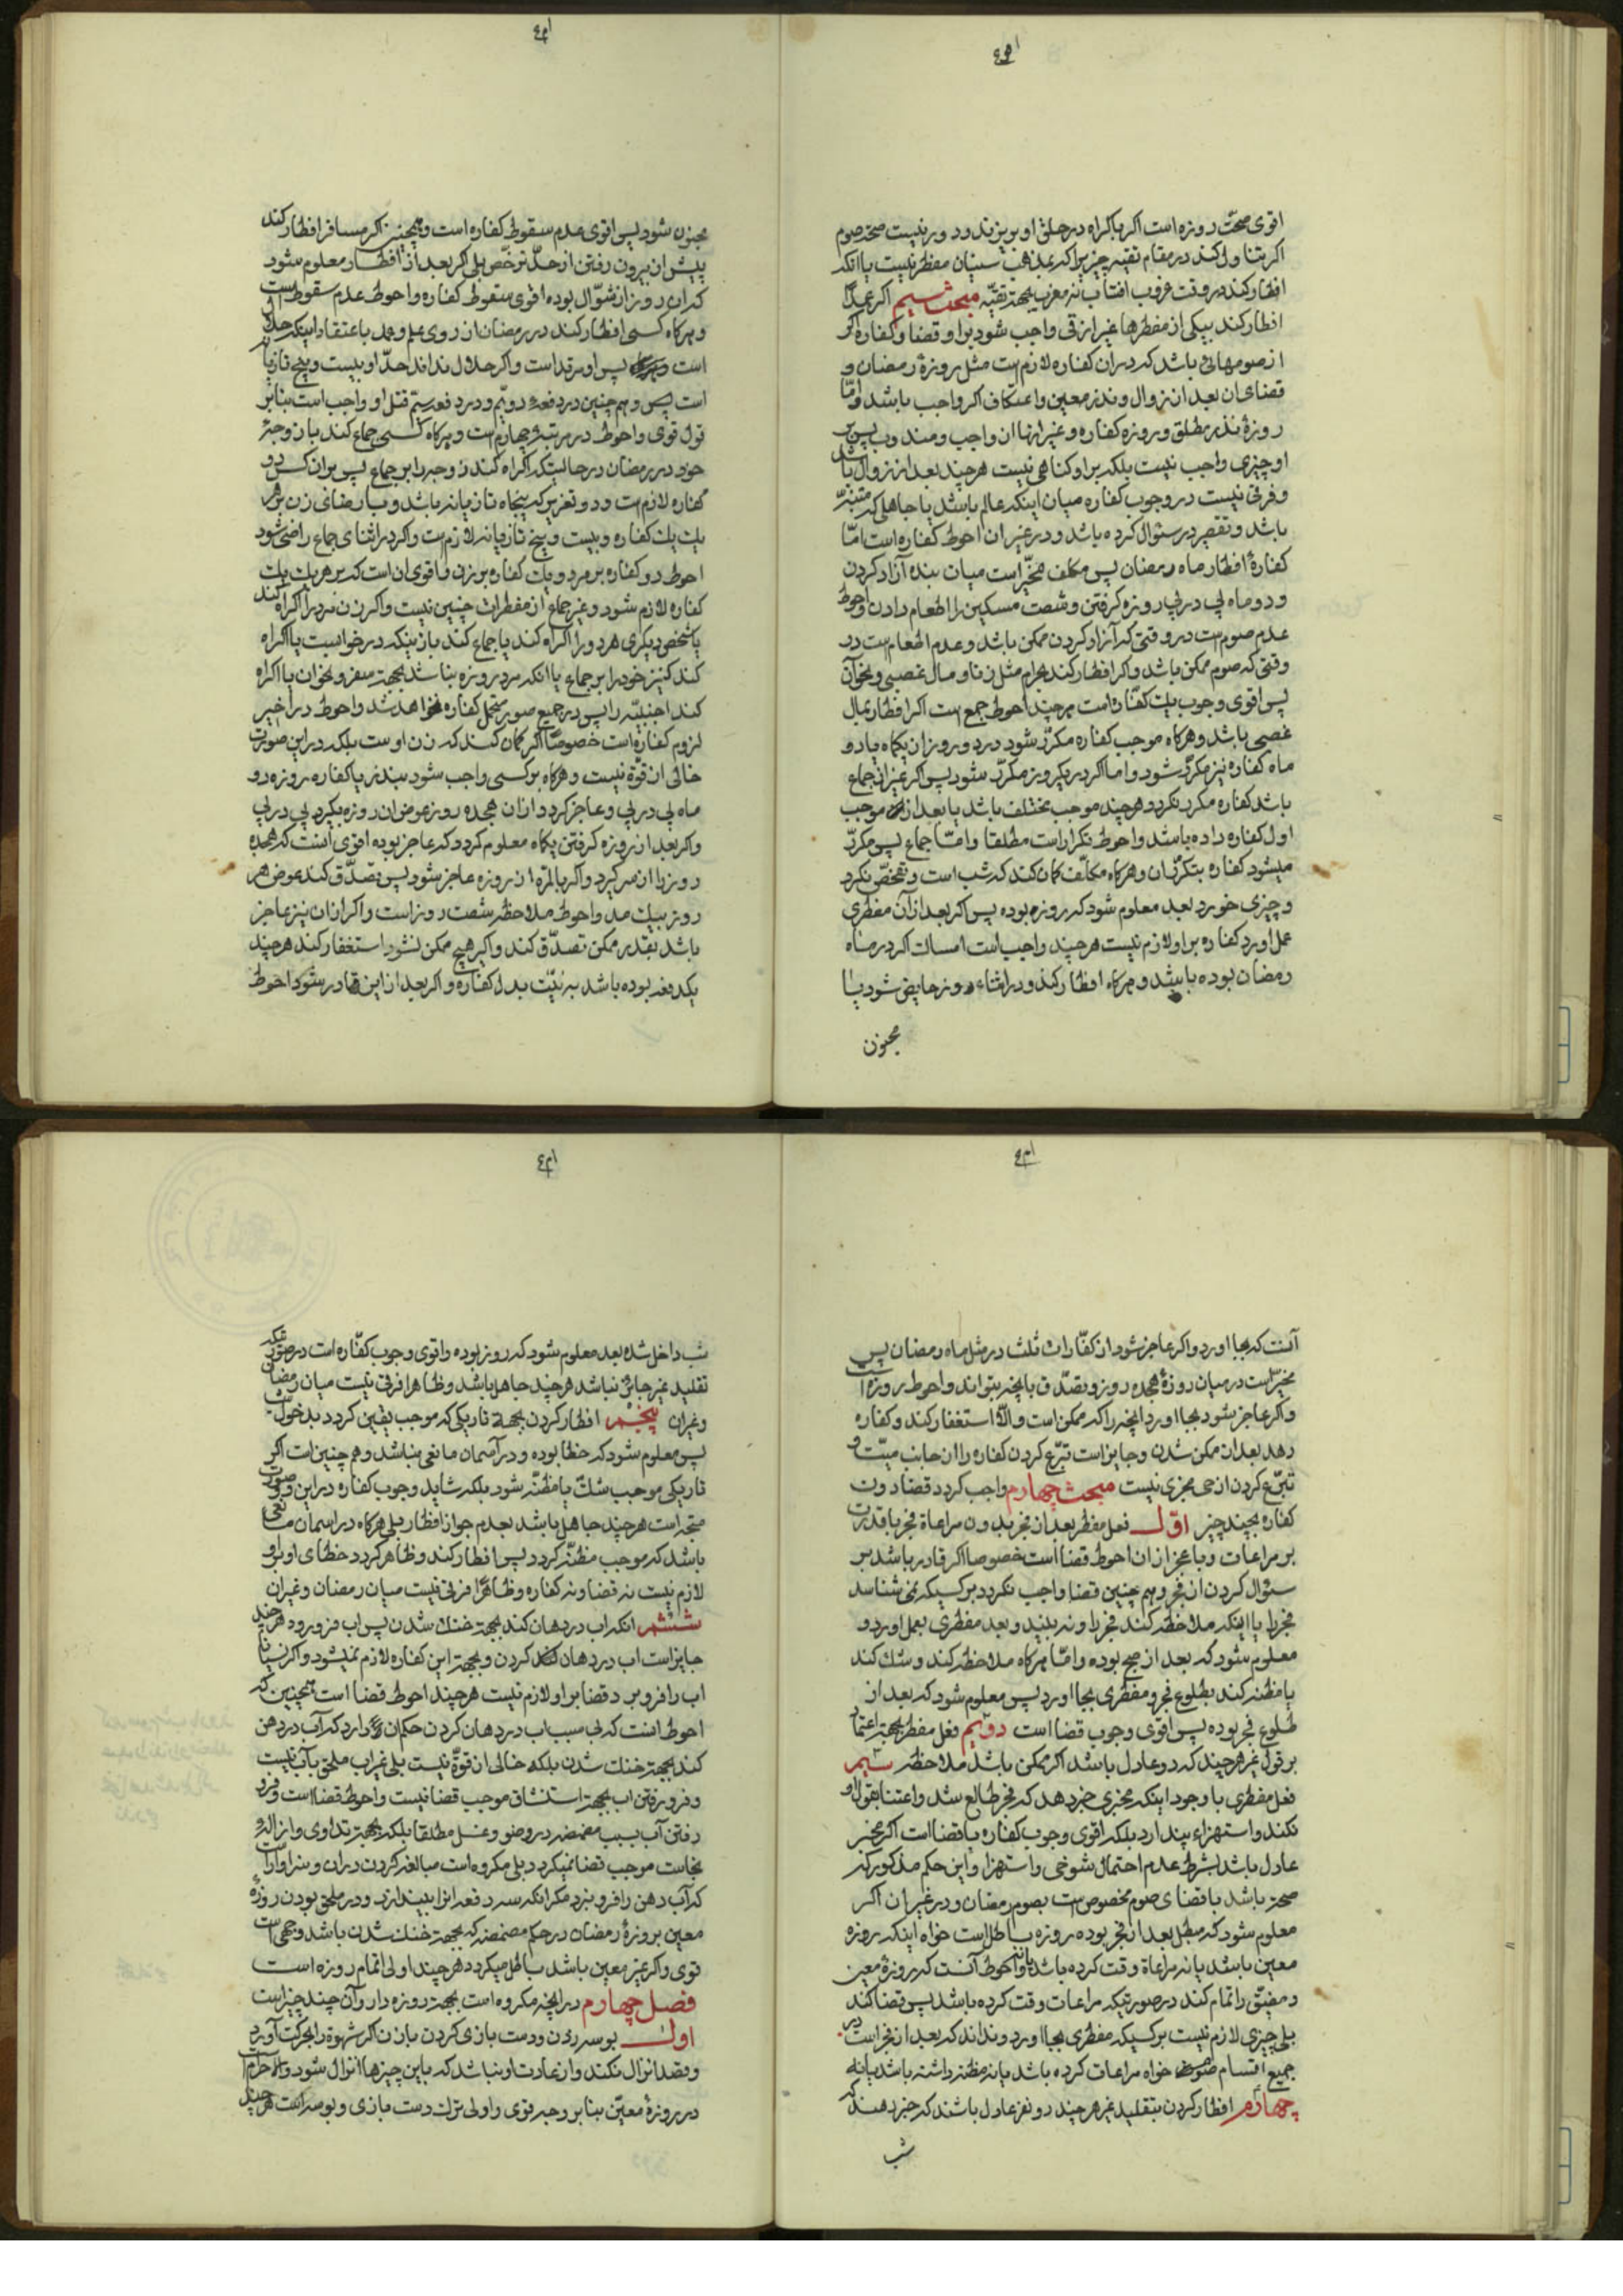 اقوی صحّت روزه است اکر باکراه در حلق او بریزند و در نیست صحة صوم
اکر تناول کند در مقام تقیه چیزیرا که بمذهب سنیان مفطر نیست یا انکه
افطار کند در وقت غروب افتاب نه مغرب بجهة تقیّه مبحث سیم اکر عمدًا
افطار کند بیکی از مفطرها غیر از قی واجب شود بر او قضا و کفاره اکر
از صومهائی باشد که در ان کفاره لازم است مثل روزهٔ رمضان و
قضای ان بعد از زوال و نذر معین و اعتکاف اکر واجب باشد و امّا
روزهٔ نذر مطلق و روزه کفاره و غیر انها از واجب و مندوب پس بر
او چیزی واجب نیست بلکه بر او کناهی نیست هرچند بعد از زوال باشد
و فرقی نیست در وجوب کفاره میان اینکه عالم باشد یا جاهلی که متنبّه
باشد و تقصیر در سئوال کرده باشد و در غیر ان احوط کفاره است امّا
کفارهٔ افطار ماه رمضان پس مکلف مخیّر است میان بنده آزاد کردن
و دو ماه پی در پی روزه کرفتن و شصت مسکین را اطعام دادن و احوط
عدم صوم است در وقتی که آزاد کردن ممکن باشد و عدم اطعام است در
وقتی که صوم ممکن باشد و اکر افطار کند بحرام مثل زنا و مال غصبی و نحو آن
پس اقوی وجوب یک کفّاره است هرچند احوط جمع است اکر افطار بمال
غصبی باشد و هرکاه موجب کفاره مکرّر شود در دو روز از یکماه یا دو
ماه کفاره نیز مکرّر شود و اما اکر در یکروز مکرّر شود پس اکر غیر از جماع
باشد کفاره مکرر نکردد هرچند موجب مختلف باشد یا بعد از موجب
اول کفاره داده باشد و احوط تکرار است مطلقا و امّا جماع پس مکرّر
میشود کفاره بتکرّر ان و هرکاه مکلّف کمان کند که شب است و تفحّص نکرد
و چیزی خورد بعد معلوم شود که روزه بوده پس اکر بعد از آن مفطری
عمل اورد کفاره بر او لازم نیست هرچند واجب است امساک اکر در ماه
رمضان بوده باشد و هرکاه افطار کند و در اثناء روز حایض شود یا
مجنون
مجنون شود پس اقوی عدم سقوط کفاره است و همچنین اکر مسافر افطار کند
پیش از بیرون رفتن از حدّ ترخّص بلی اکر بعد از افطار معلوم شود
که ان روز از شوّال بوده اقوی سقوط کفاره و احوط عدم سقوط است
و هرکاه کسی افطار کند در رمضان از روی علم و عمد با عتقاد اینکه حلال
است پس او مرتد است و اکر حلال نداند حدّ او بیست و پنج تازیانه
است پس و هم چنین در دفعهٔ دویّم و در دفعه سیّم قتل او واجب است بنابر
قول قوی و احوط در مرتبهٔ چهارم است و هرکاه کسی جماع کند با زوجهٔ
خود در رمضان در حالیتکه اکراه کند زوجه را بر جماع پس بر ان کس دو
کفاره لازم است و دو تعزیر که پنجاه تازیانه باشد و با رضائی زن بر هر
یک یک کفاره و بیست و پنج تازیانه لازم است و اکر در اثنای جماع راضی شود
احوط دو کفاره بر مرد و یک کفاره بر زن و اقوی ان است که بر هر یک یک
کفاره لازم شود و غیر جماع از مفطرات چنین نیست و اکر زن مرد را اکراه کند
یا شخص دیکری هر دو را اکراه کند یا جماع کند با زنیکه در خواب است یا اکراه
کند کنیز خود را بر جماع یا انکه مرد روزه نباشد بجهة سفر و نحو ان یا اکراه
کند اجنبیّه را پس در جمیع صور متحمل کفاره نخواهد شد و احوط در اخیر
لزوم کفاره است خصوصًا اکر کمان کند که زن اوست بلکه در این صورت
خالی از قوّة نیست و هرکاه بر کسی واجب شود بنذر یا کفاره روزه دو
ماه پی در پی و عاجز کردد از ان هجده روز عوض ان روزه بکیرد پی در پی
و اکر بعد از روزه کرفتن یکماه معلوم کردد که عاجز بوده اقوی انست که هجده
روز را از سر کیرد و اکر بالمرّه از روزه عاجز شود پس تصدّق کند عوض هر
روز بیک مد و احوط ملاحظه شصت روز است و اکر از ان نیز عاجز
باشد بقدر ممکن تصدّق کند و اکر هیچ ممکن نشود استغفار کند هرچند
یکدفعه بوده باشد به نیّت بدل کفاره و اکر بعد از این قادر شود احوط
آنست که بجا اورد و اکر عاجز شود از کفّارات ثلث در مثل ماه رمضان پس
مخیّر است در میان روزهٔ هجده روز و تصدّق بانچه بتواند و احوط روزه است
و اکر عاجز شود بجا اورد انچه را که ممکن است و الّا استغفار کند و کفاره
دهد بعد از ممکن شدن و جایز است تبرّع کردن کفاره را از جانب میّت و
تبرّع کردن از حی مجزی نیست مبحث چهارم واجب کردد قضا دون
کفاره بچند چیز اوّل فعل مفطر بعد از فجر بدون مراعاة فجر با قدرت
بر مراعات و با عجز از ان احوط قضا است خصوصا اکر قادر باشد بر
سئوال کردن از فجر و هم چنین قضا واجب نکردد بر کسیکه نمی شناسد
فجر را یا اینکه ملاحظه کند فجر را و نه بیند و بعد مفطری بعمل اورد و
معلوم شود که بعد از صبح بوده و امّا هرکاه ملاحظه کند و شک کند
یا مظنه کند بطلوع فجر و مفطری بجا اورد پس معلوم شود که بعد از
طلوع فجر بوده پس اقوی وجوب قضا است دویّم فعل مفطر بجهة اعتماد
بر قول غیر هرچند که دو عادل باشد اکر ممکن باشد ملاحظه سیم
فعل مفطری با وجود اینکه مخبری خبر دهد که فجر طالع شد و اعتنا بقول او
نکند و استهزاء پندارد بلکه اقوی وجوب کفاره با قضا است اکر مخبر
عادل باشد بشرط عدم احتمال شوخی و استهزا و این حکم مذکور که
صحة باشد با قضای صوم مخصوص است بصوم رمضان و در غیر ان اکر
معلوم شود که مبطل بعد از فجر بوده روزه باطل است خواه اینکه روزه
معین باشد یا نه مراعاة وقت کرده باشد یا نه و احوط آنست که روزهٔ معین
و مضیّق را تمام کند در صورتیکه مراعات وقت کرده باشد پس قضا کند
بلی چیزی لازم نیست بر کسیکه مفطری بجا اورد و نداند که بعد از فجر است در
جمیع اقسام صوم خواه مراعات کرده باشد یا نه مظنه داشته باشد یا نه
چهارم افطار کردن بتقلید غیر هرچند دو نفر عادل باشند که خبر دهند که
شب
شب داخل شده بعد معلوم شود که روز بوده و اقوی وجوب کفّاره است در صورتیکه
تقلید غیر جائز نباشد هرچند جاهل باشد و ظاهرا فرقی نیست میان رمضان
و غیر ان پنجم افطار کردن بجهة تاریکی که موجب یقین کردد بدخول شب
پس معلوم شود که خطا بوده و در آسمان مانعی نباشد و هم چنین است اکر
تاریکی موجب شک یا مظنّه شود بلکه شاید وجوب کفاره در این دو صورت
متجه است هرچند جاهل باشد بعدم جواز افطار بلی هرکاه در اسمان مانعی
باشد که موجب مظنّه کردد پس افطار کند و ظاهر کردد خطای او بر او
لازم نیست نه قضا و نه کفاره و ظاهرًا فرقی نیست میان رمضان و غیر ان
ششم انکه اب در دهان کند بجهة خنک شدن پس اب فرو رود هرچند
جایز است اب در دهان کردن و بجهة این کفاره لازم نمیشود و اکر نسیانا
اب را فرو برد قضا بر او لازم نیست هرچند احوط قضا است همچنین که
احوط انست که بی سبب اب در دهان کردن حکم ان دارد که آب در دهن
کند بجهة خنک شدن بلکه خالی از قوّة نیست بلی غیر اب ملحق بآب نیست
و فرو رفتن اب بجهة استنشاق موجب قضا نیست و احوط قضا است و فرو
رفتن آب بسبب مضمضه در وضو و غسل مطلقا بلکه بجهة تداوی و ازالهٔ
نجاست موجب قضا نمیکردد بلی مکروه است مبالغه کردن در ان و سزاوار آنست
که آب دهن را فرو نبرد مکر انکه سه دفعه انرا بیندازد و در ملحق بودن روزهٔ
معین بروزهٔ رمضان در حکم مضمضه که بجهة خنک شدن باشد وجهی است
قوی و اکر غیر معین باشد باطل میکردد هرچند اولی اتمام روزه است
فصل چهارم در انچه مکروه است بجهة روزه دار و آن چند چیز است
اول بوسه زدن و دست بازی کردن با زن اکر شهوة را بحرکت آورد
و قصد انزال نکند و از عادت او نباشد که باین چیزها انزال شود و الا حرام است
در روزهٔ معیّن بنا بر وجه قوی و اولی ترک دست بازی و بوسه است هرچند